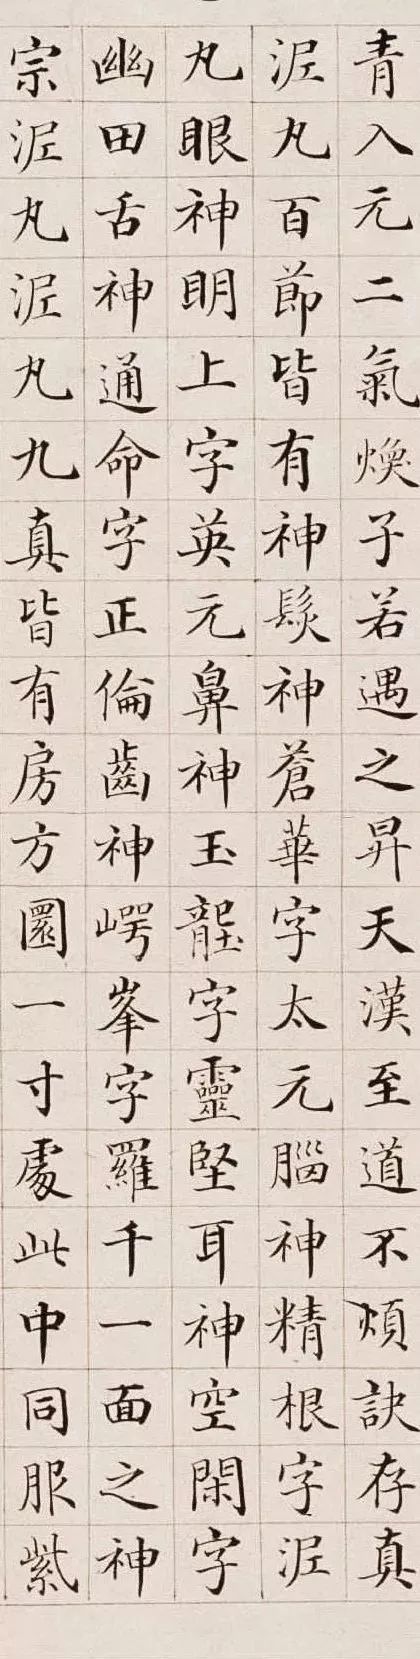 青入元二氣煥子若遇之昇天漢至道不煩訣存真
泥丸百節皆有神髮神蒼華字太元腦神精根字泥
丸眼神明上字英元鼻神玉壟字靈堅耳神空閑字
幽田舌神通命字正倫齒神崿峯字羅千一面之神
宗泥丸泥丸九真皆有房方圓一寸處此中同服紫